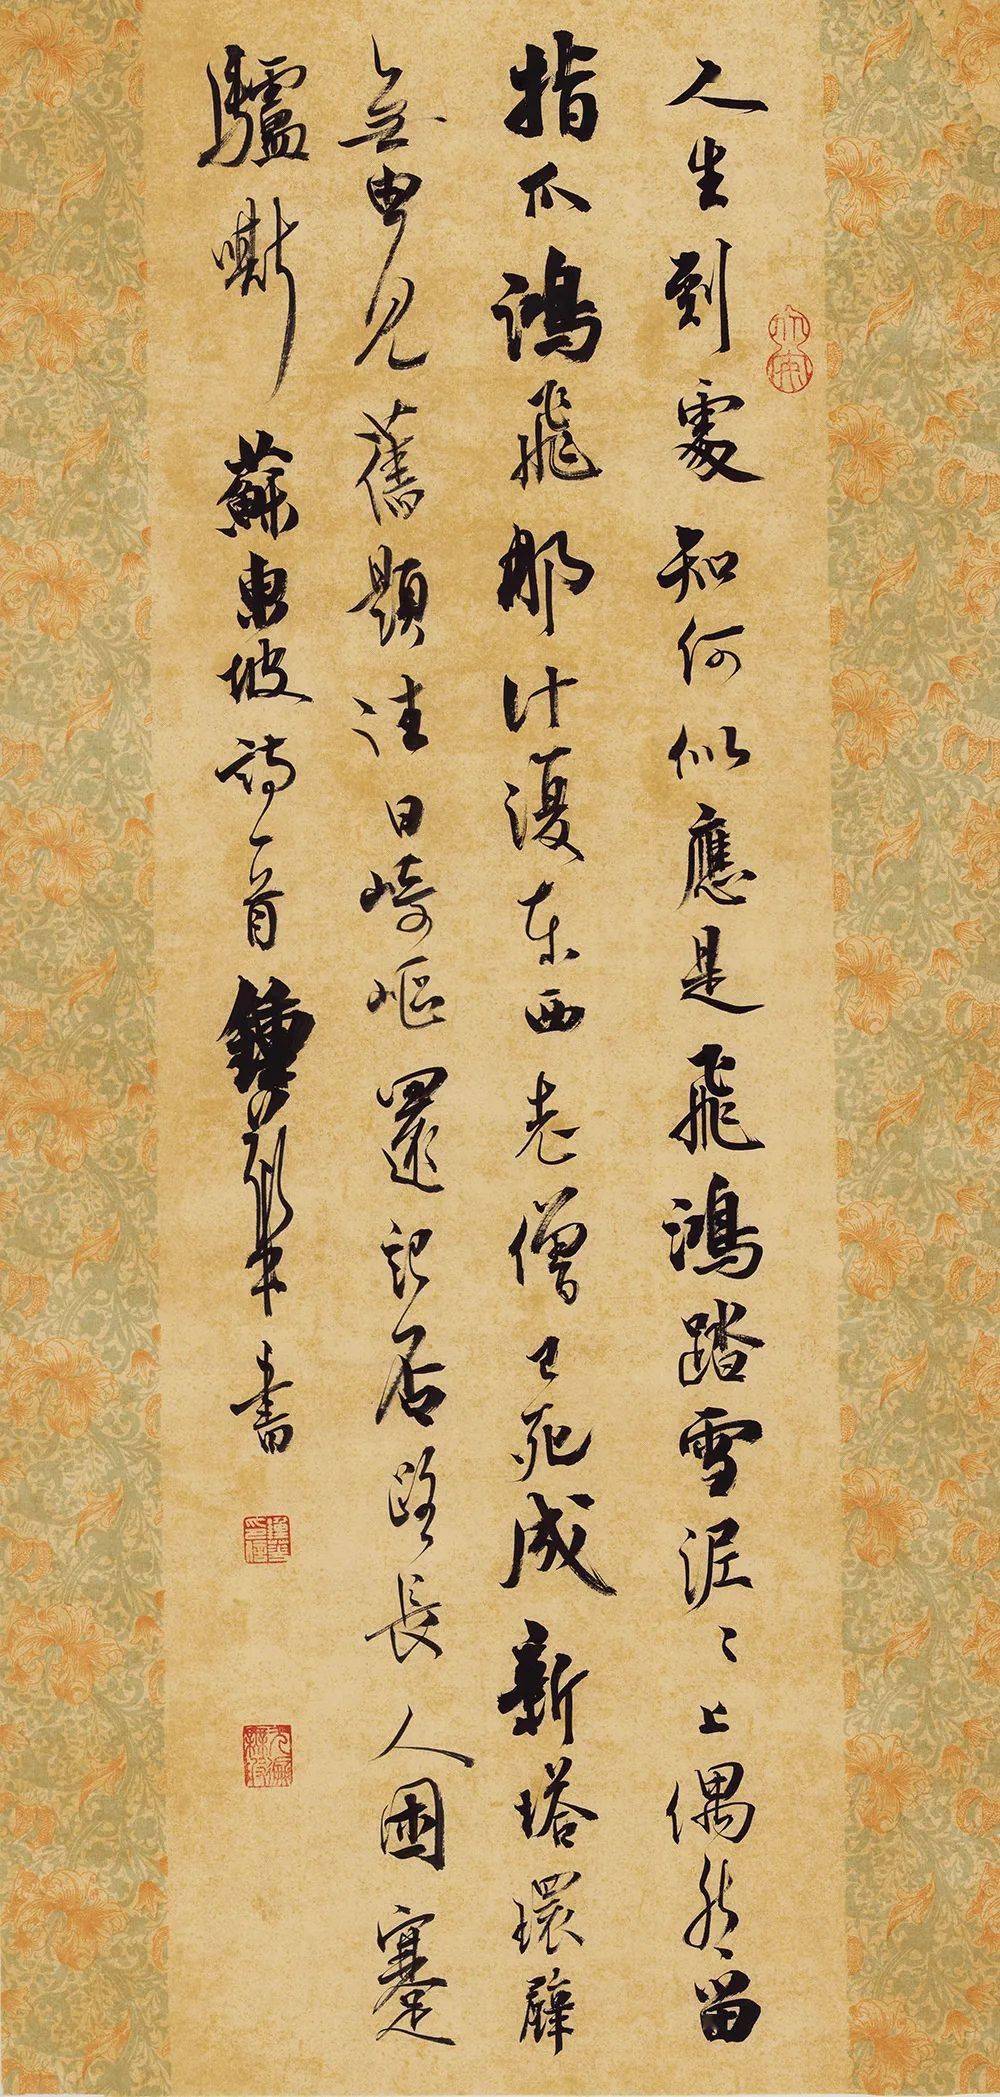 人生到處知何似應是飛鴻踏雪泥〻上偶然留
指爪鴻飛那計復東西老僧已死成新塔壞壁
無由見舊題往日崎嶇還記否路長人困蹇
驢嘶 蘇東坡詩一首 鍾 書